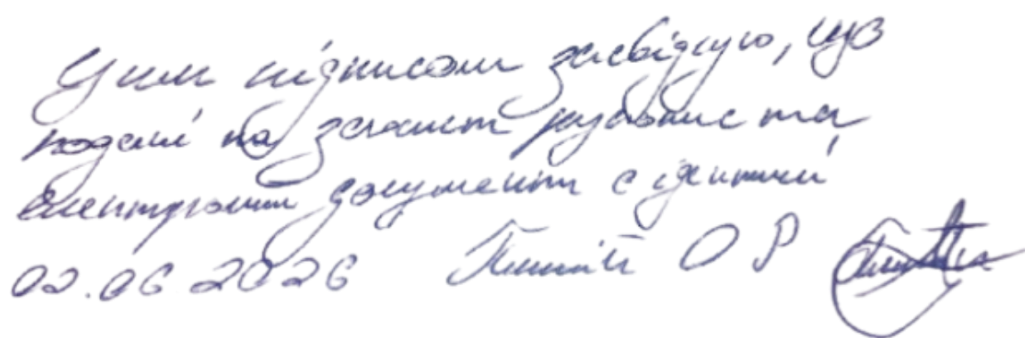 Цим підписом засвідчую, що
подані на захист рукопис та
електронний документ є ідентичні
02.06 2026 О Р